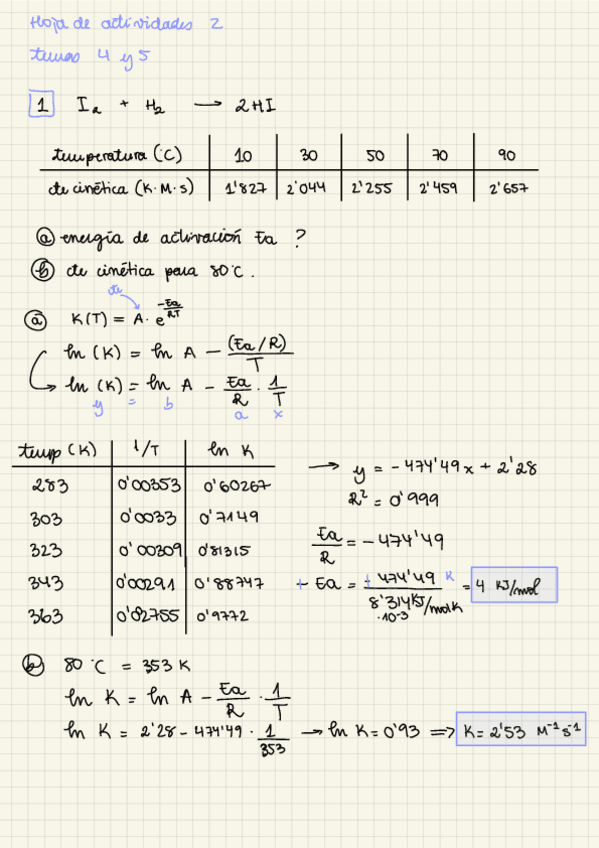 Hoja de actividades 2
temas 4 y 5
1 I₂ + H₂ → 2HI
temperatura (°C) 10 30 50 70 90
cte cinética (K·M·s) 1'827 2'044 2'255 2'459 2'657
a energía de activación Ea ?
b cte cinética para 80°C.
cte
a K(T) = A · e^(-Ea/RT)
ln (K) = ln A - (Ea/R)/T
ln (K) = ln A - Ea/R · 1/T
y = b a x
temp (K) 1/T ln K
283 0'00353 0'60267
303 0'0033 0'7149
323 0'00309 0'81315
343 0'00291 0'88747
363 0'02755 0'9772
→ y = -474'49x + 2'28
R² = 0'999
Ea/R = -474'49
- Ea = - 474'49 K / 8'314 KJ/molK ·10⁻³ = 4 KJ/mol
b 80°C = 353 K
ln K = ln A - Ea/R · 1/T
ln K = 2'28 - 474'49 · 1/353 → ln K = 0'93 ⇒ K = 2'53 M⁻¹s⁻¹